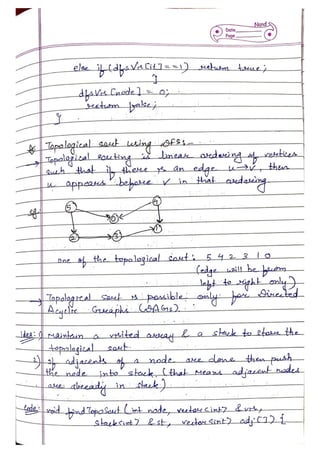 Nand
Date
Page
else if (dfsVis[it] == 1) return true;
}
dfsVis[node] = 0;
return false;
}
Topological sort using DFS:-
→ Topological sorting is linear ordering of vertices
such that if there is an edge u→v, then
u appears before v in that ordering.
eg:
5 4
0
2 3 1
One of the topological sort: 5 4 2 3 1 0
(edge will be from
left to right only)
→ Topological sort is possible only for Directed
Acyclic Graphs (DAGs).
Idea: 1) Maintain a visited array & a stack to store the
topological sort.
2) If adjacents of a node are done then push
the node into stack. (that means adjacent nodes
are already in stack)
Code: void findTopoSort(int node, vector<int> &vis,
stack<int> &st, vector<int> adj[]) {